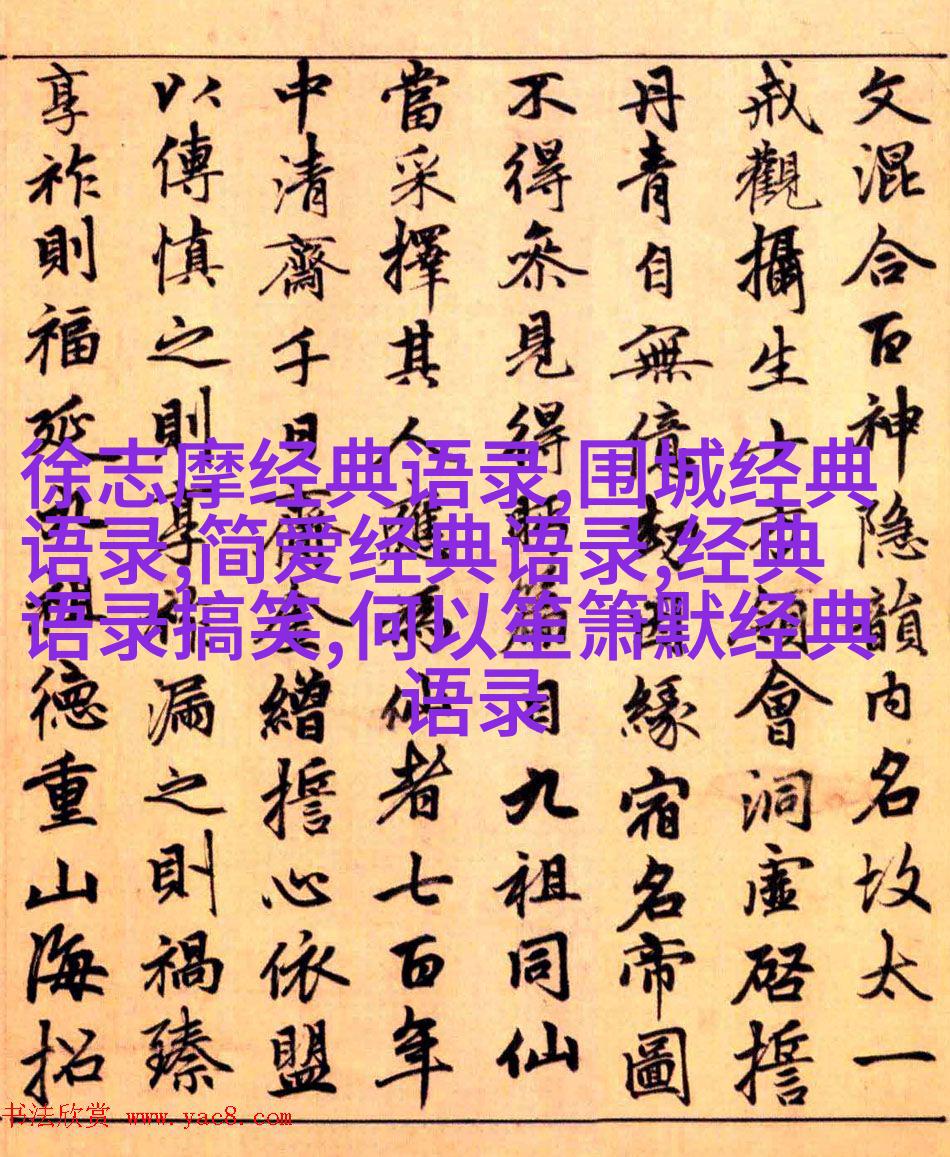 文混合百神隐韻内名太一
戒觀攝生會洞虛啓誓
丹青自無緣宿名帝圖
不得叅見得目九祖同仙
當采擇其人應為仙者七百年
中清齋千日齋金繒誓心依盟
以傳慎之則漏之則禍臻
享祚則福延德重山海招
徐志摩经典语录,围城经典
语录,简爱经典语录,经典
语录搞笑,何以笙箫默经典
语录
书法欣赏 www.yac8.com